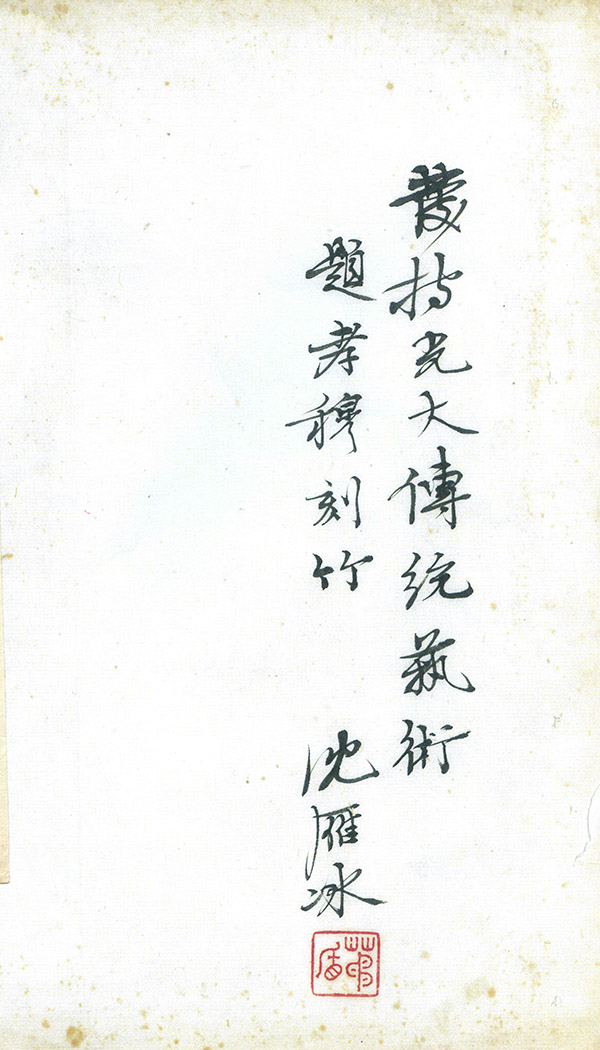 發揚光大傳統藝術
題孝穆刻竹
沈雁冰
茅盾